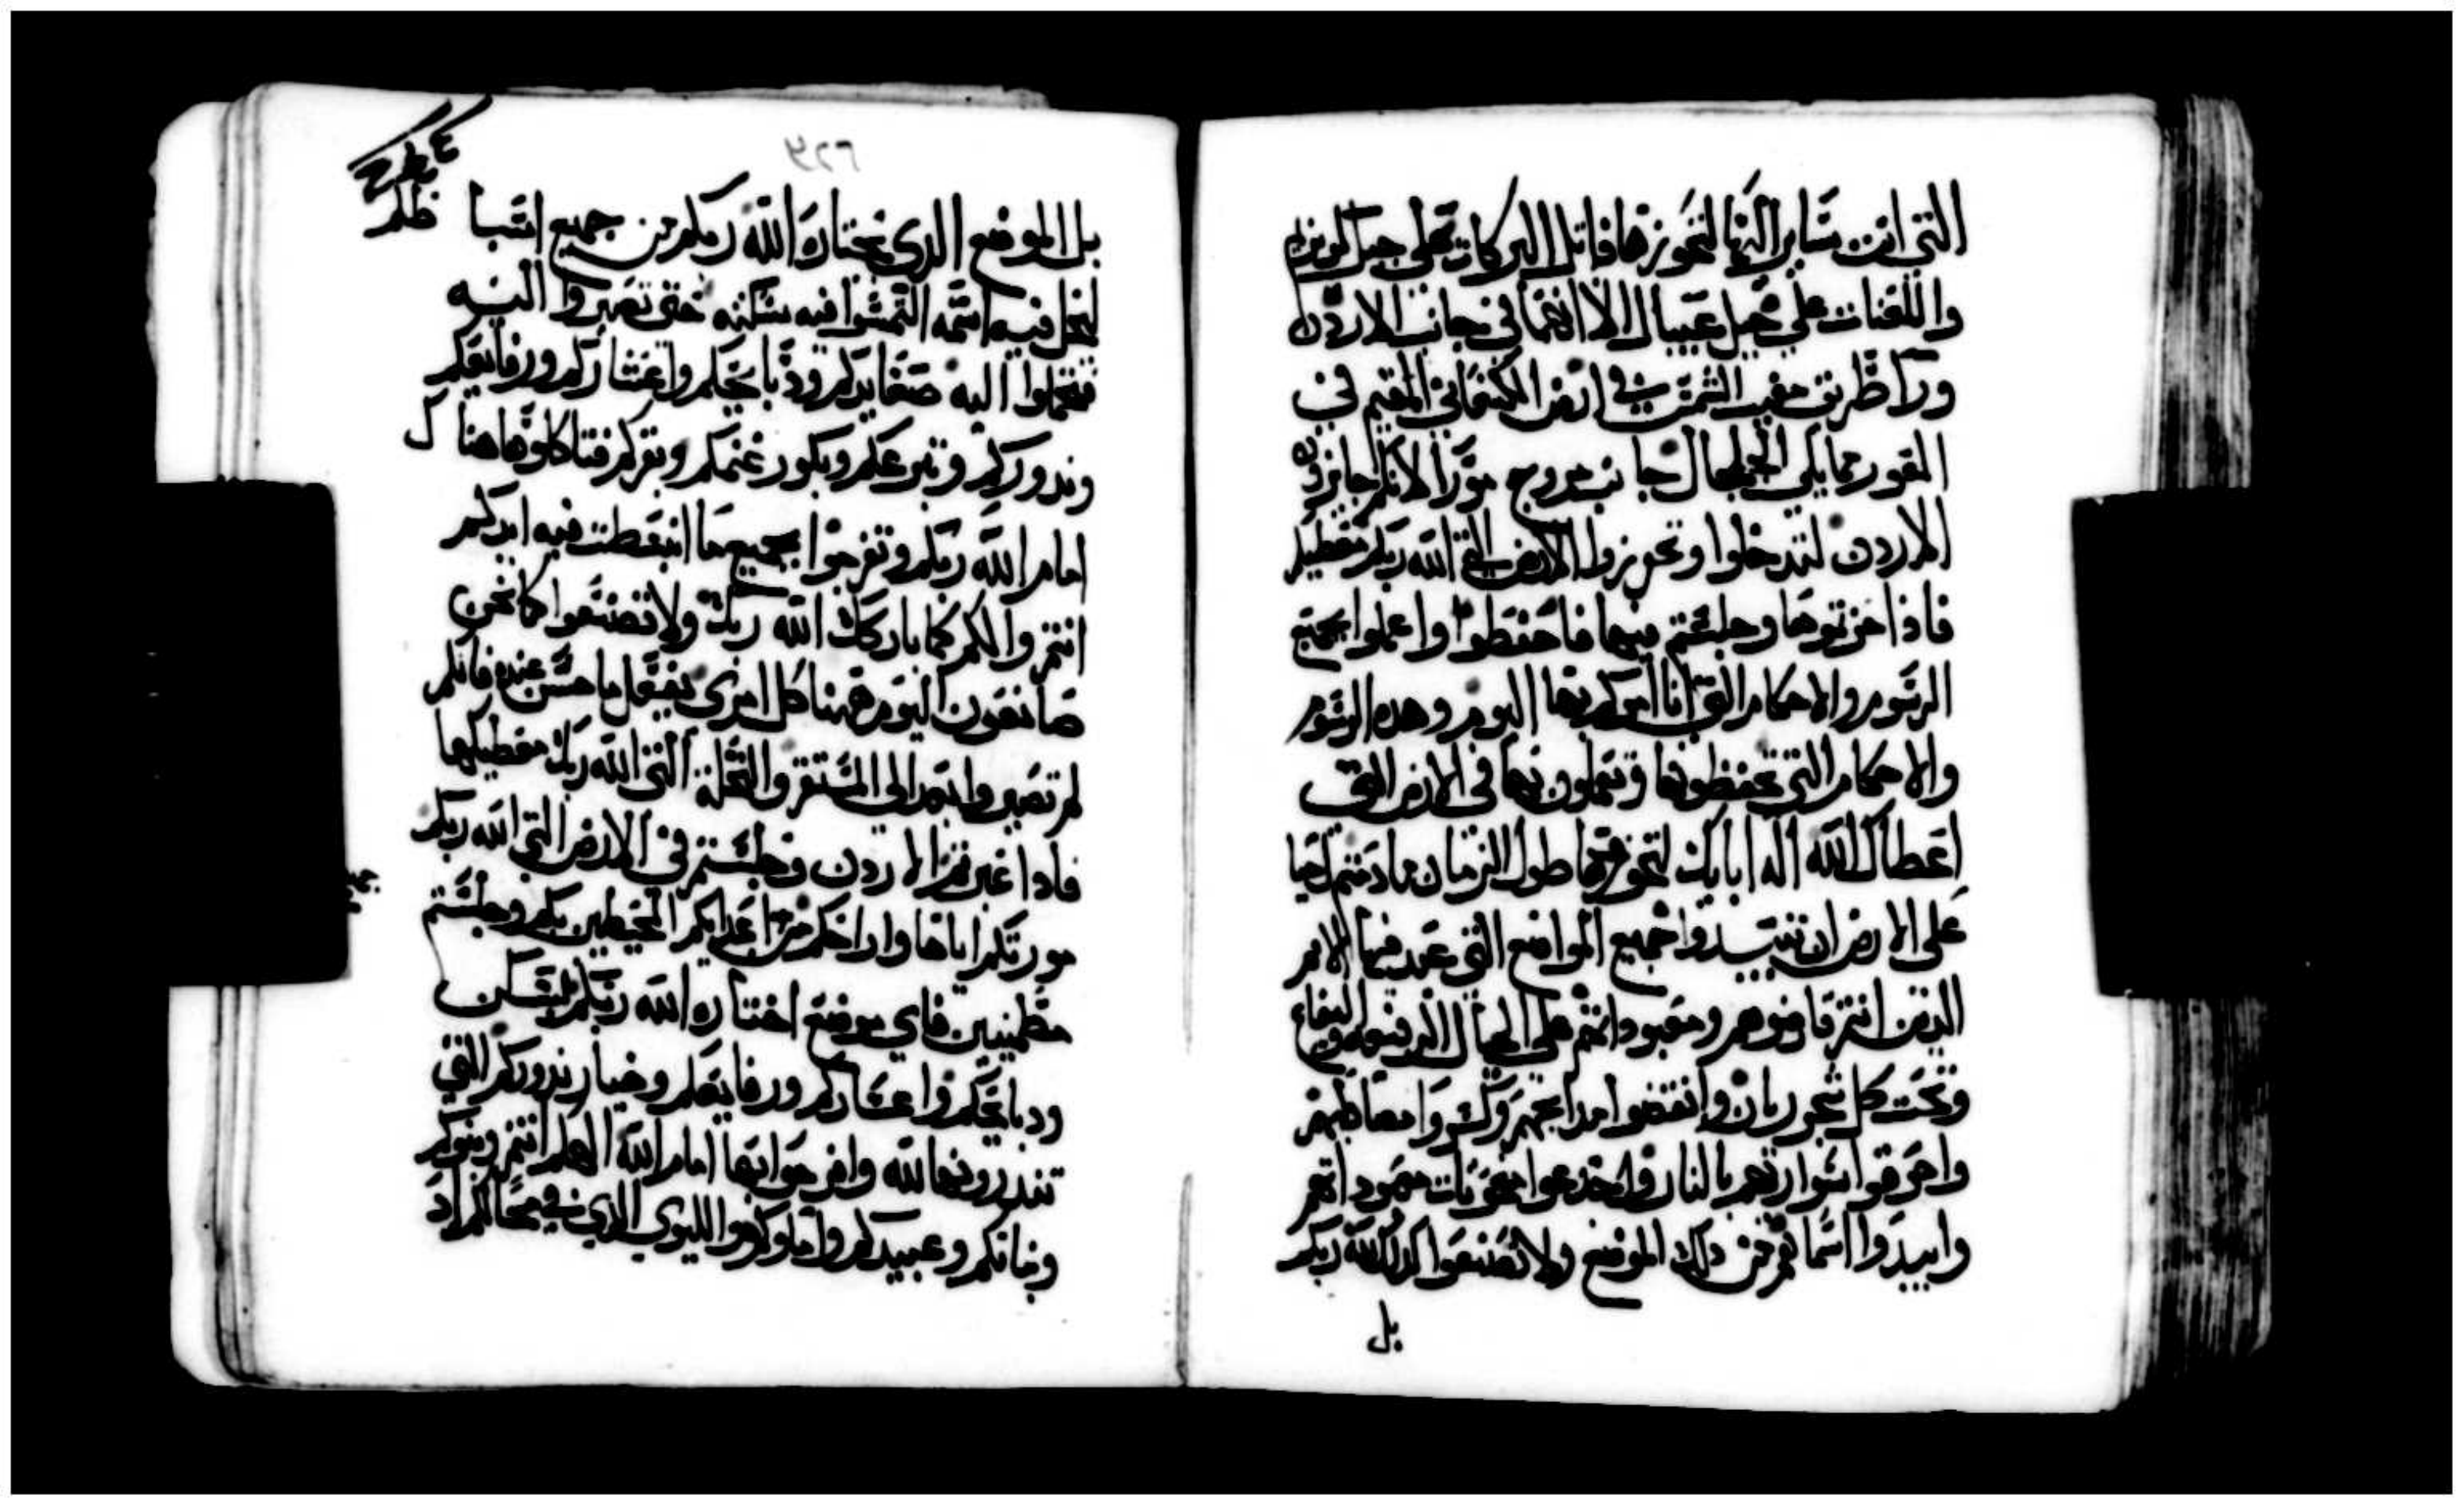 التي انت سَاير اليها لتحوزها فاتل البركات على جبل كريزيم
واللعنات على جبل عيبال الا انهما في جانب الاردن
ورا طريق مغيب الشمس في ارض الكنعاني المقيم في
الغور مما يلي الجلجال جانب مروج مورا لانكم جايزون
الاردن لتدخلوا وتحوزوا الارض التي الله ربكم معطيكم
فاذا حزتموها وجلستم فيها فاحفظوا واعملوا بجميع
الرسوم والاحكام التي انا امركم بها اليوم وهده الرسوم
والاحكام التي تحفظونها وتعملون بها في الارض التي
اعطاك الله اله ابايك لتحوزها طول الزمان ما دمتم احيا
على الارض ان تبيدوا جميع المواضع التي عبد فيها الامم
الذين انتم قارضوهم ومعبوداتهم على الجبال
وتحت كل شجر ريان وانقضوا مدابحهم وكسروا مصاطبهم
واحرقوا سواريهم بالنار واجدعوا منحوتات معبوداتهم
وابيدوا اسماهم من دلك الموضع ولا تصنعوا كدلك لله ربكم
بل
٢٢٤
بل الموضع الدي يختاره الله ربكم من جميع اسبا
ليحل فيه اسمه التمسوا فيه سكنته حتى تصيروا اليه
فتحملوا اليه صعايدكم ودبايحكم واعشاركم ورفايعكم
وندوركم وتبرعكم وبكور غنمكم وبقركم فتاكلوها هناك
امام الله ربكم وتفرحوا بجميع ما انبسطت فيه ايديكم
انتم والكم كما باركك الله ربك ولا تصنعوا كما نحن
صانعون اليوم ههنا كل امرى يفعل ما حسن عنده فانكم
لم تصيروا بعد الى المستقر والنحلة التي الله ربك معطيكها
فادا عبرتم الاردن وجلستم في الارض التي الله ربكم
مورثكم اياها واراحكم من اعدايكم المحيطين بكم وجلستم
مطمينين فاي موضع اختاره الله ربكم ليسكن
ودبايحكم واعشاركم ورفايعكم وخيار ندوركم التي
تندرونها لله وافرحوا بها امام الله الهكم انتم وبنوكم
وبناتكم وعبيدكم واماوكم والليوي الدي في محالكم اد